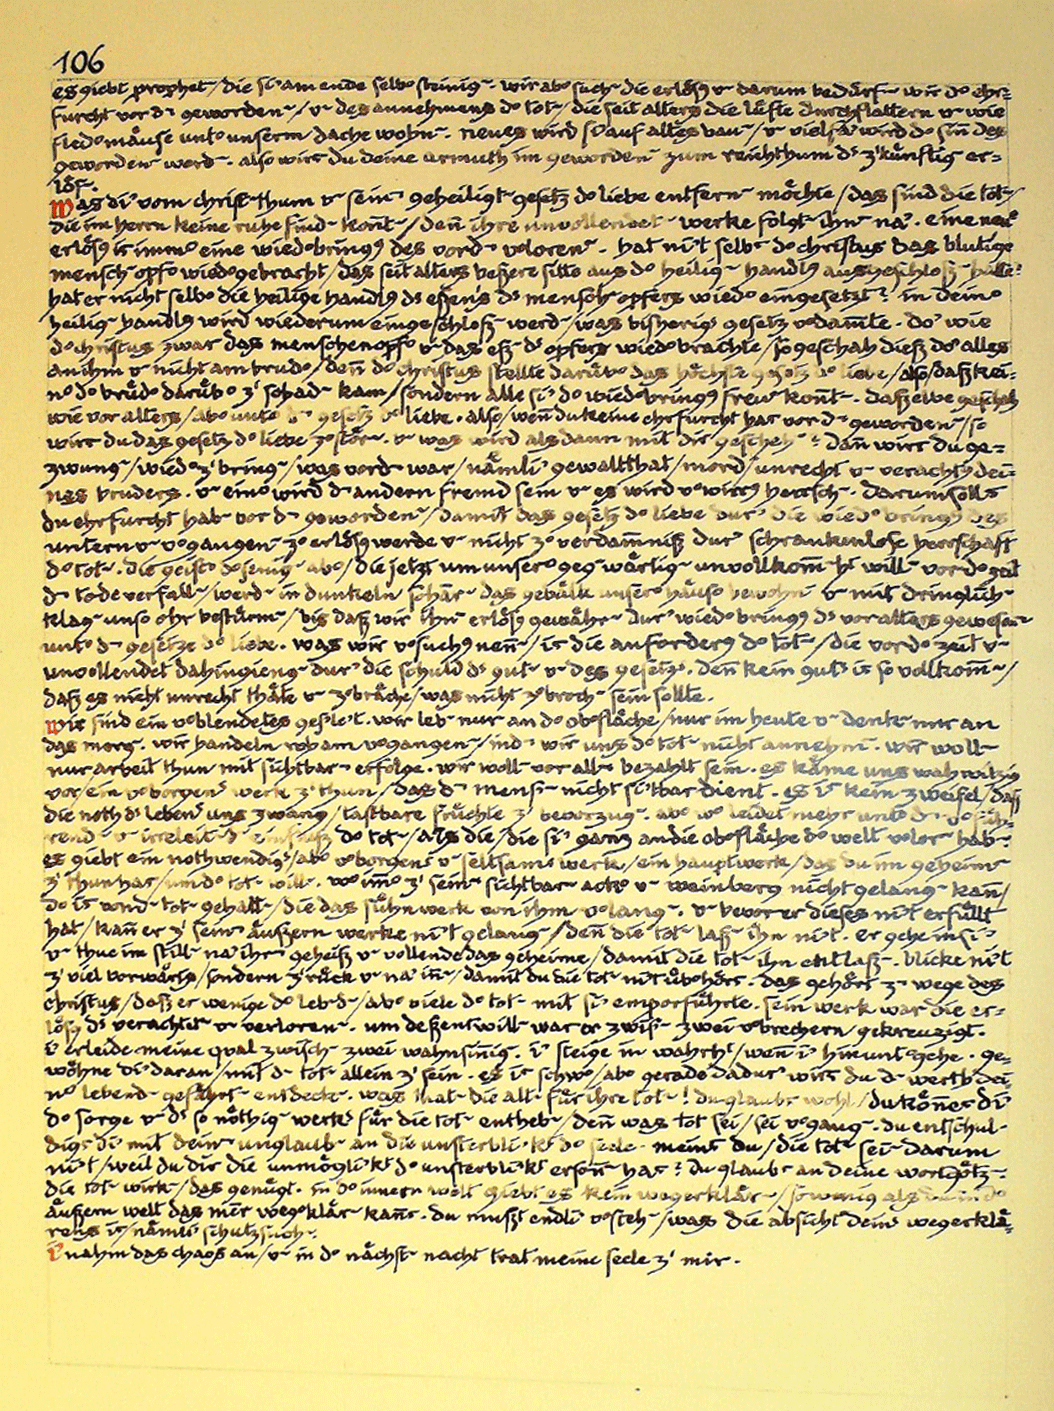 106
es giebt prophet-/die si' am ende selb° steinig-. wir ab° such- die erlösg v- darum bedürf- wir d° ehr=
furcht vor d- geworden-/v- des annehmens d° tot-/die seit alters die lüfte durchflattern v- wie
fled°mäuse unt° unserm dache wohn-. neues wird si' auf altes bau-/v- vielfa' wird d° sin̄ des
geworden- werd-. also wirst du deine armuth im geworden- zum reichthum ds z'künftig- er=
lös-.
Was di' vom christ-thum v- sein- geheiligt- gesetz d° liebe entfern- möchte/das sind die tot-/
die im herrn keine ruhe find- kont-/den̄ ihre unvollendet- werke folgt- ihn- na'. eine neue
erlösg ist im̄° eine wied°bringg des vord- v°loren-. hat ni't selbst d° christus das blutige
mensch-opf° wied°gebracht/das seit alters beßere sitte aus d° heilig- handlg ausgeschloß- hatte?
hat er nicht selb° die heilige handlg ds eßens ds mensch-opfers wied° eingesetzt? in dein°
heilig- handlg wird wiederum eingeschloß- werd-/was bisherigs gesetz v°dam̄te. do' wie
d° christus zwar das menschenopf° v- das eß- ds opfers wied°brachte/so geschah dieß do' alles
an ihm v- nicht am brud°/den̄ d° christus stellte darüb° das höchste gesetz d° liebe/also/daß kei=
n° d° brüd° darüb° z' schad- kam/sondern alle si' d° wied°bringg freu- kont-. daßelbe geschah
wie vor alters/ab° unt° d- gesetz d° liebe. also/wen̄ du keine ehrfurcht hast vor d- geworden-/so
wirst du das gesetz d° liebe z°stör-. v- was wird alsdann mit dir gescheh-? dan̄ wirst du ge=
zwung-/wied° z' bring-/was vord- war/nämli' gewaltthat/mord/unrecht v- verachtg dei=
nes bruders. v- ein° wird d- andern fremd sein v- es wird v°wirrg herrsch-. darum sollst
du ehrfurcht hab- vor d- geworden-/damit das gesetz d° liebe dur' die wied°bringg des
untern v- v°gangen- z° erlösg werde v- nicht z° verdam̄niß dur' schrankenlose herrschaft
d° tot-. die geist° d°jenig- ab°/die jetzt um unser° geg-wärtig- unvollkom̄-ht will- vor d° zeit
d- tode verfall-/werd- in dunkeln schar- das gebälk unser° häus° bewohn- v- mit dringlich-
klag- uns° ohr bestürm-/bis daß wir ihn- erlösg gewähr- dur' wied°bringg ds vor alters gewesen-
unt° d- gesetze d° liebe. was wir v°suchg nen̄-/ist die anforderg d° tot-/die vor d° zeit v-
unvollendet dahingieng- dur' die schuld ds gut- v- des gesetzs. den̄ kein guts ist so vollkom̄-/
daß es nicht unrecht thäte v- z°bräche/was nicht z°broch- sein sollte.
Wir sind ein v°blendetes geschle't. wir leb- nur an d° ob°fläche/nur im heute v- denk- nur an
das morg-. wir handeln roh am v°gangen-/ind- wir uns d° tot- nicht annehm-. wir woll-
nur arbeit thun mit sichtbar- erfolge. wir woll- vor all- bezahlt sein. es käme uns wahnwitzig
vor/ein v°borgens werk z' thun/das d- mensch- nicht si'tbar dient. es ist kein zweifel/daß
die noth ds lebens uns zwang/tastbare früchte z' bevorzug-. ab° w° leidet mehr unt° d- v°füh=
rend- v- irreleit-d- einfluß d° tot-/als die/die si' ganz an die ob°fläche d° welt v°lor- hab-
es giebt ein nothwendigs/ab° v°borgens v- seltsams werk/ein hauptwerk/das du im geheim-
z' thun hast/um d° tot- will-. w° im̄° z' sein- sichtbar- ack° v- weinberg nicht gelang- kan̄/
d° ist von d- tot- gehalt-/die das sühnwerk von ihm v°lang-. v- bevor er dieses ni't erfüllt
hat/kan̄ er z' sein- äußern werke ni't gelang-/den̄ die tot- laß- ihn ni't. er gehe in si'
v- thue im still- na' ihr- geheiß v- vollende das geheime/damit die tot- ihn entlaß-. blicke ni't
z' viel vorwärts/sondern z'rück v- na' in̄-/damit du die tot- ni't üb°hörst. das gehört z- wege des
christus/daß er wenige d° leb-d-/ab° viele d° tot- mit si' emporführte. sein werk war die er=
lösg ds verachtet- v- verloren-. um deßentwill- war er zwisch- zwei v°brechern gekreuzigt.
I' erleide meine qual zwisch- zwei wahnsinnig-. i' steige in wahrht/wen̄ i' hinunt°gehe. ge=
wöhne di' daran/mit d- tot- allein z' sein. es ist schw°/ab° gerade dadur' wirst du d- werth dei=
n° lebend- gefährt- entdeck-. was that- die alt- für ihre tot-! du glaubst wohl/du kön̄est di'
d° sorge v- ds so nöthig- werks für die tot- entheb-/den̄ was tot sei/sei v°gang-. du entschul=
digst di' mit dein- unglaub- an die unsterbli'kt d° seele. meinst du/die tot- sei- darum
ni't/weil du dir die unmögli'kt d° unsterbli'kt erson̄- hast? du glaubst an deine wortgötz-.
die tot- wirk-/das genügt. in d° innern welt giebt es kein wegerklär-/so wenig als du in d°
äußern welt das meer wegerklär- kan̄st. du mußt endli' v°steh-/was die absicht deins wegerklä=
rens ist/nämli' schutzsuch-.
I' nahm das chaos an/v- in d° nächst- nacht trat meine seele z' mir.